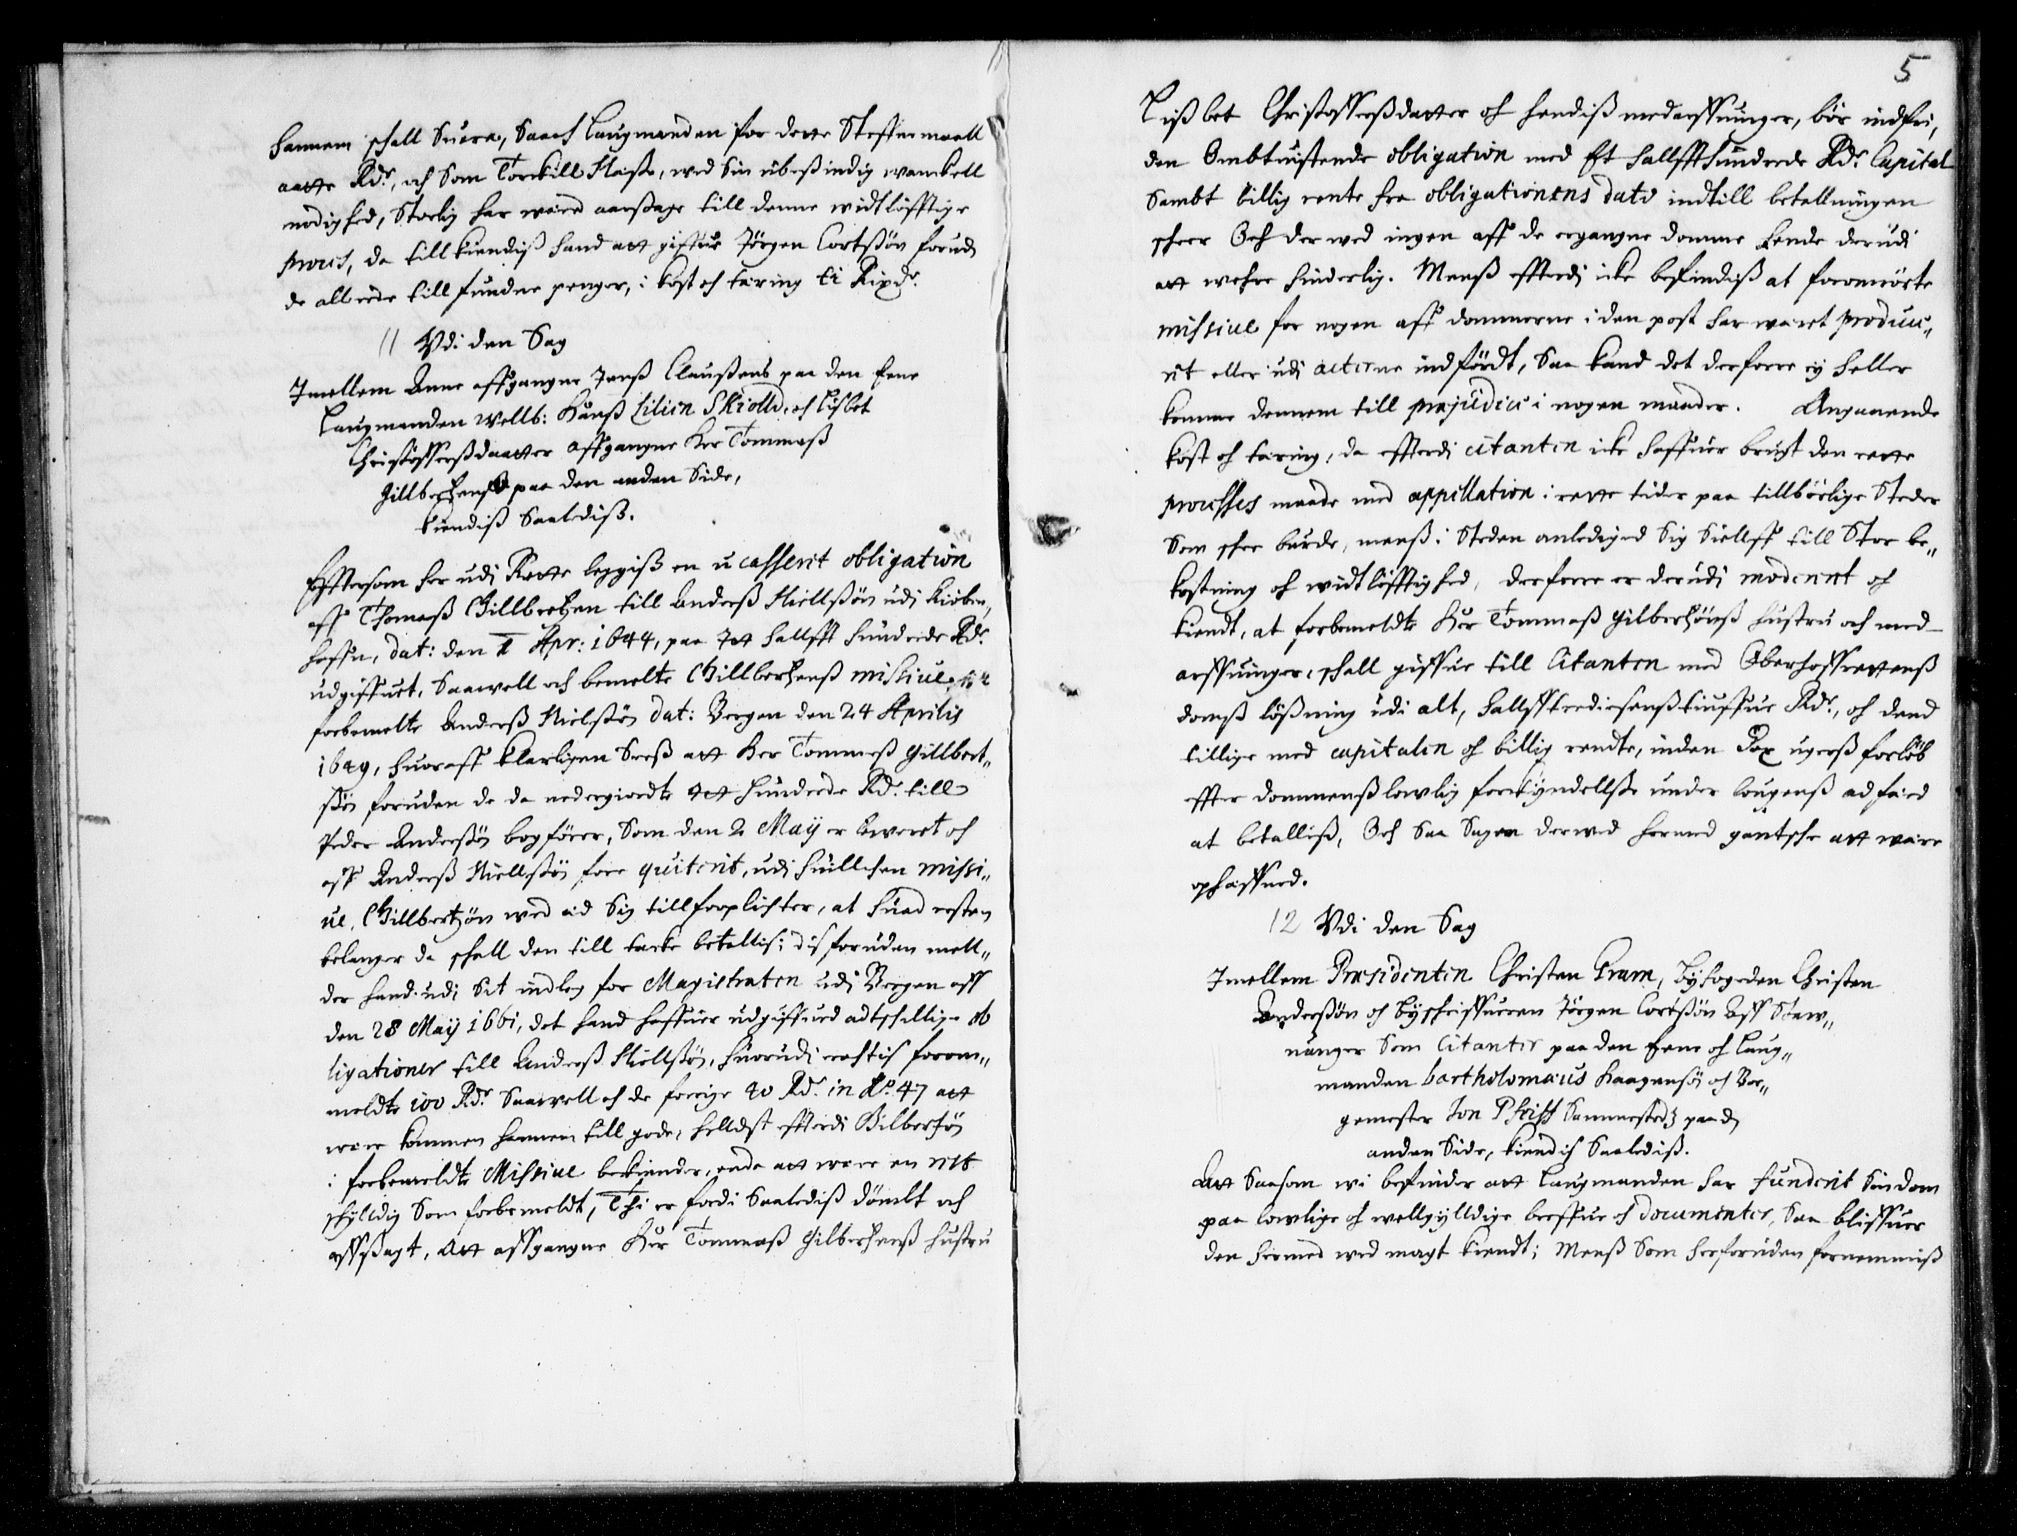 hannem schall Suare, Saa och Laugmanden for dette Steffnemaall
aatte Rdr, och Som Torkill Hase, med Sin ubesindig
nodighed, Storlig har været aarsage till denne widtløfftige
proces, da tillkiendiss hand att giffue Jørgen Cortssøn forud
de allerede tillfundne penger, i kost och tæring ti Rixdr.
11 Vdi den Sag
Imellem Anne affgangne Jenss Claussens paa den Eene
Laugmanden Wellb: Hanss Lilien Skiold, och Lisbet
Christoffersdaatter affgangne Her Tommass
Gillbertsens paa den anden Side,
kiendiss Saalediss.
Efftersom her udi Rette leggiss en u casserit obligation
aff Thomass Gillbertsen till Anderss Niellssøn udi Kiøben,
haffn, dat: den 1 Apr: 1644, paa Itt hallfft hundrede Rdr
udgiffuet, Saawell och bemelte Gillbertsenss missiue till
forbemelte Anderss Nielssøn dat: Bergen den 24 Aprilis
1649, huoraff klarligen Seess att Her Tommess Gillbert„
søn foruden de da nedergiordte Itt hundrede Rdr till
Peder Anderssøn bogfører, Som den 2 Maij er leweret och
aff Anderss Niellssøn fore quiterit, udi huillchen missi„
ue, Gillbertsøn wed æd Sig tillforplichter, at huad resten
belanger da schall den till tacke betallis; dissforuden mell„
der hand udi Sit indleg for Magistraten udi Bergen aff
den 28 Maij 1661, det hand haffuer udgiffued adtschellige ob
ligationer till Anderss Niellssøn, huorudi erachtis forom„
meldte 100 Rdr Saawell och de forrige 40 Rdr in Ao 47 att
være kommen hannem till gode, helldst effterdi Gilbertsøn
i forbemeldte Missiue bekiender, enda att være en rest
schylldig Som forbemeldt, Thi er fordi Saalediss dømbt och
affsagt, Att affgangne Her Tommass Gilbertsenss hustru
5
Lissbet Christoffersdatter och hendiss medarffuinger, bør indfri,
den Ombtuistende obligation med Et hallfft hundrede Rdr Capital
Sambt billig rente fra obligationens dato indtill betallningen
scheer Och derwed ingen aff de ergangne domme Eende derudi
att wehre hinderlig. Menss effterdi icke befindiss at foromrørte
missiue for nogen aff dommerne i den post har wæret produce„
rit eller udi acterne indførdt, Saa kand det derforre ey heller
komme dennem till præjudice i nogen maader. Angaaende
kost och tæring, da effterdi citanten icke haffuer brugt den rette
processes maade med appellation i rette tider paa tillbørlige Steder
Som schee burde, menss i Steden anlediged Sig Siellff till Stor be„
kostning och widtløfftighed, derforre er derudi moderert och
kiendt, at forbemeldte Her Tommass Gilbertsønss hustru och med
arffuinger schall giffue till Citanten med Oberhoffrettenss
domss løssning udi alt, hallfftrediesenstiuffue Rdr, och dend
tillige med capitalen och billig rendte, inden Sex ugerss forløb
effter dommenss lowlig forkyndellsse under lougenss adfærd
at betalliss, Och Saa Sagen derwed hermed gantsche att være
ophæffued.
12 Vdi den Sag
Imellem Præsidenten Christen Bram, byfogeden Christen
Anderssøn och byschriffueren Jørgen Cortssøn Aff Staw„
uanger Som Citanter paa den Eene och Laug„
manden bartholomæus Haagenssøn och Bor„
gemester Ion Pheiff Sammestedz paa d
anden Side, kiendis Saalediss.
Att Saasom wi befinder att Laugmanden har funderit Sin dom
paa lowlige och wellgylldige breffue och documenter, Saa bliffuer
den hermed wed magt kiendt; Menss Som herforuden fornemmiss